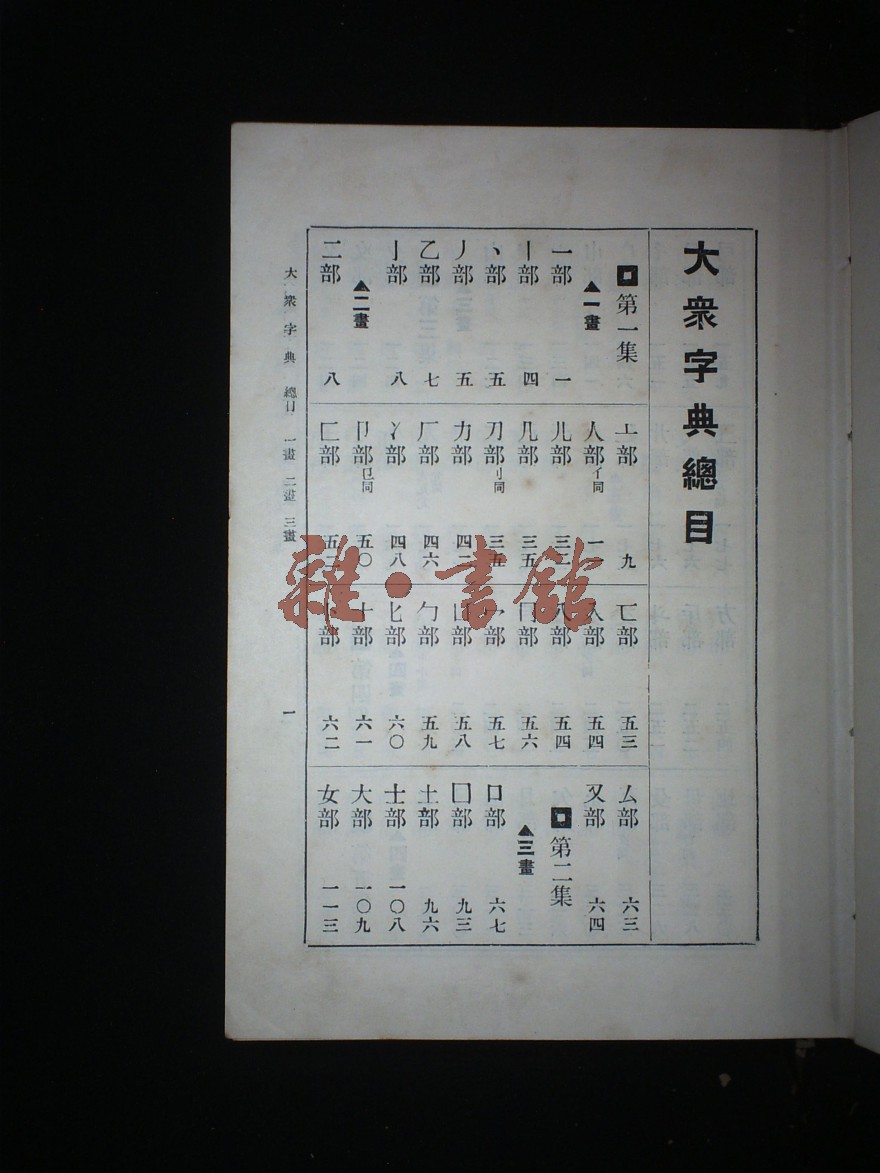 大衆字典總目
第一集
▲一畫
一部 一
丨部 四
丶部 五
丿部 五
乙部 七
亅部 八
▲二畫
二部 八
亠部 九
人部 亻同 一
儿部 三二
几部 三五
刀部 刂同 三五
力部 四二
厂部 四六
冫部 四八
卩部 㔾同 五〇
匚部 五二
匸部 五三
入部 五四
八部 五四
冂部 五六
冖部 五七
凵部 五八
勹部 五九
匕部 六〇
十部 六一
卜部 六二
厶部 六三
又部 六四
第二集
▲三畫
口部 六七
囗部 九三
土部 九六
士部 一〇八
大部 一〇九
女部 一一三
大衆字典 總目 一畫 二畫 三畫 一
雜·書館